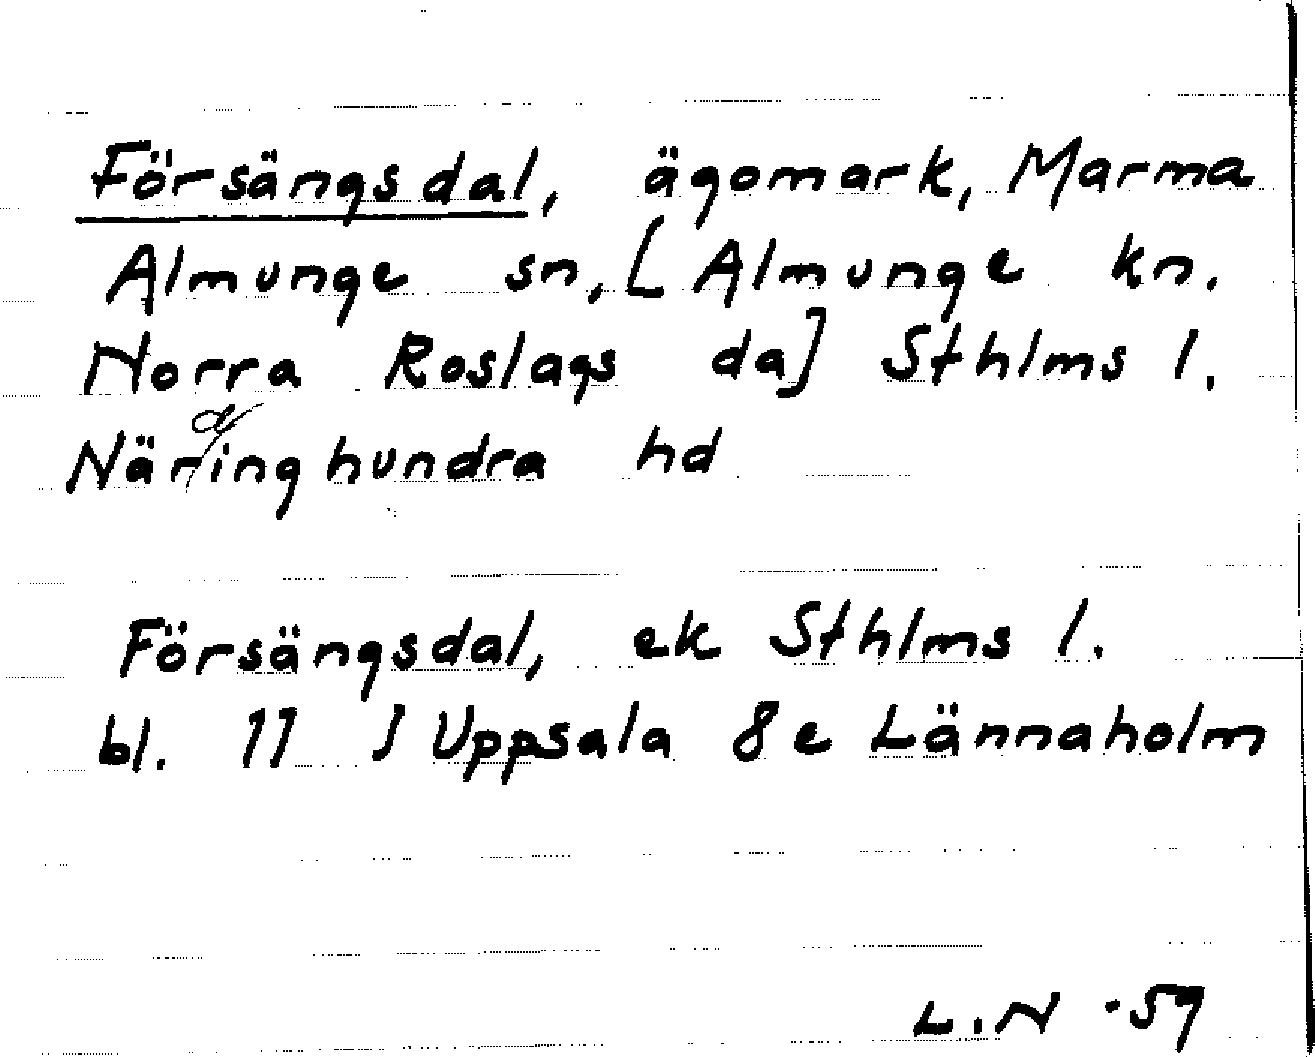 Försängsdal, ägomark, Marma
Almunge sn, [Almunge kn.
Norra Roslags da] Sthlms l.
Näringhundra hd
Försängsdal, ek Sthlms l.
bl. 11 J Uppsala 8e Lännaholm
L.N -59